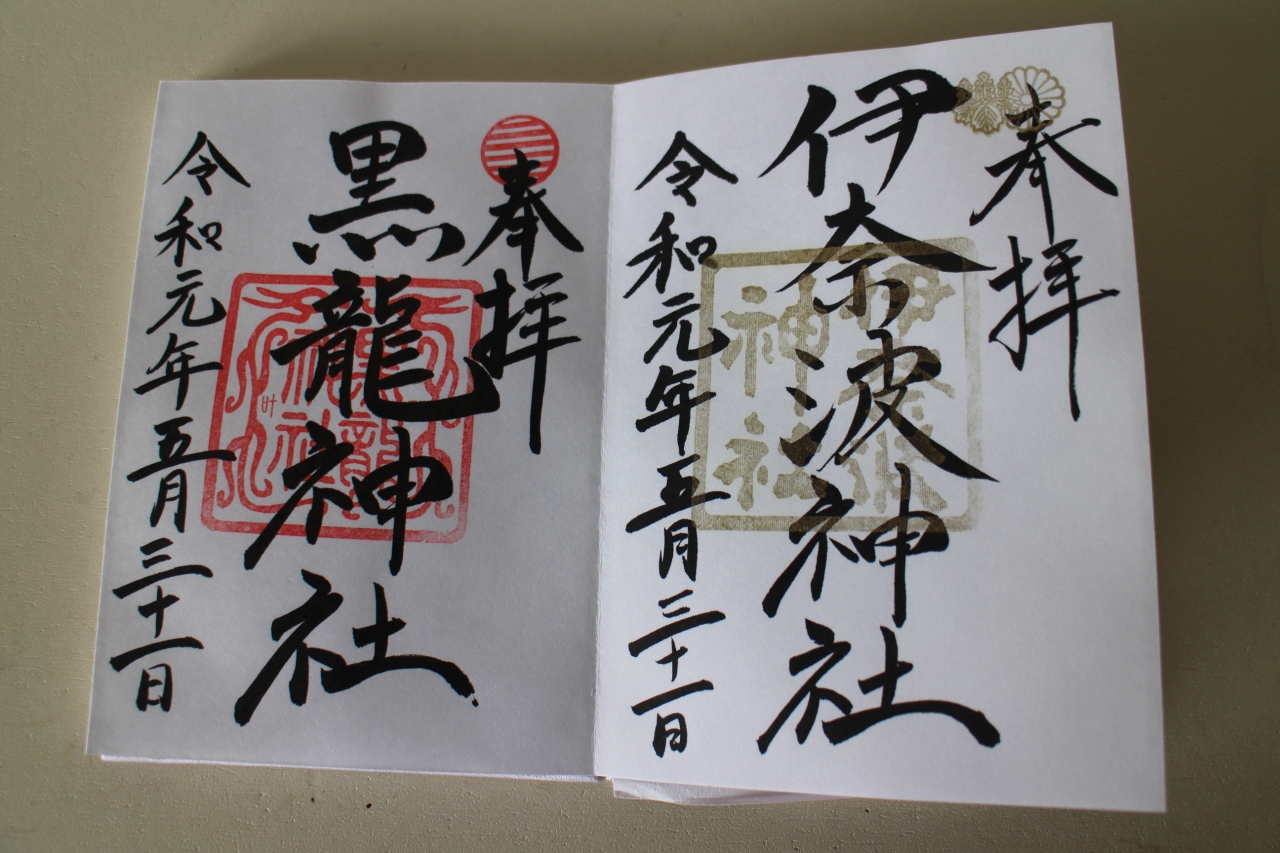 奉拝
伊奈波神社
伊奈波
神社
令和元年五月三十一日
奉拝
黒龍神社
黒龍
神社
令和元年五月三十一日